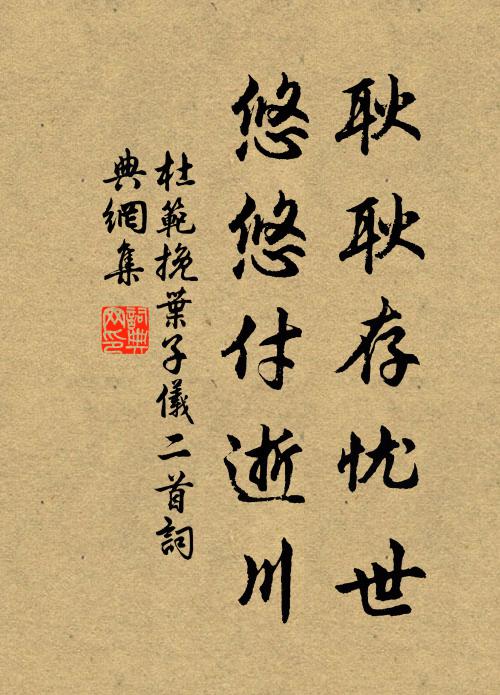 耿耿存忧世
悠悠付逝川
杜範挽葉子儀二首詞
典網集
詞典
网印